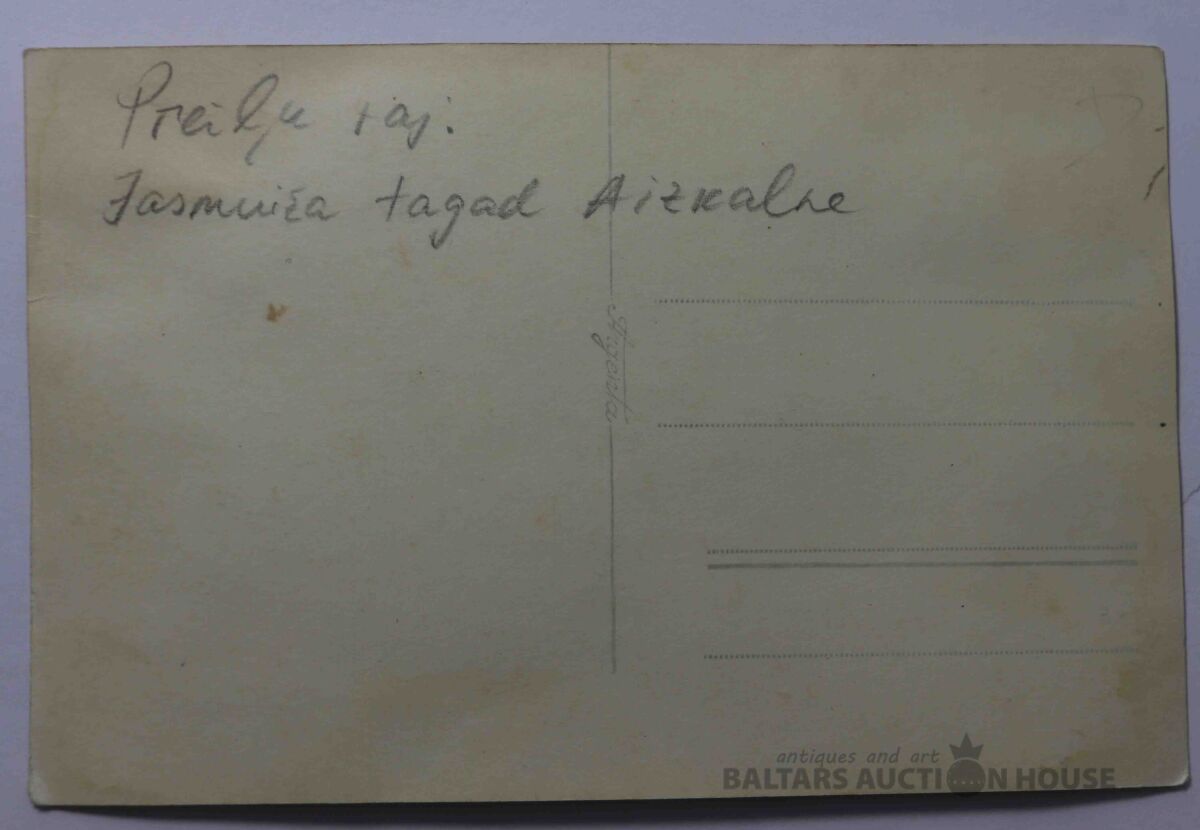 Preiļu raj.
Jasmuiža tagad Aizkalne
antiques and art
BALTARS AUCTION HOUSE